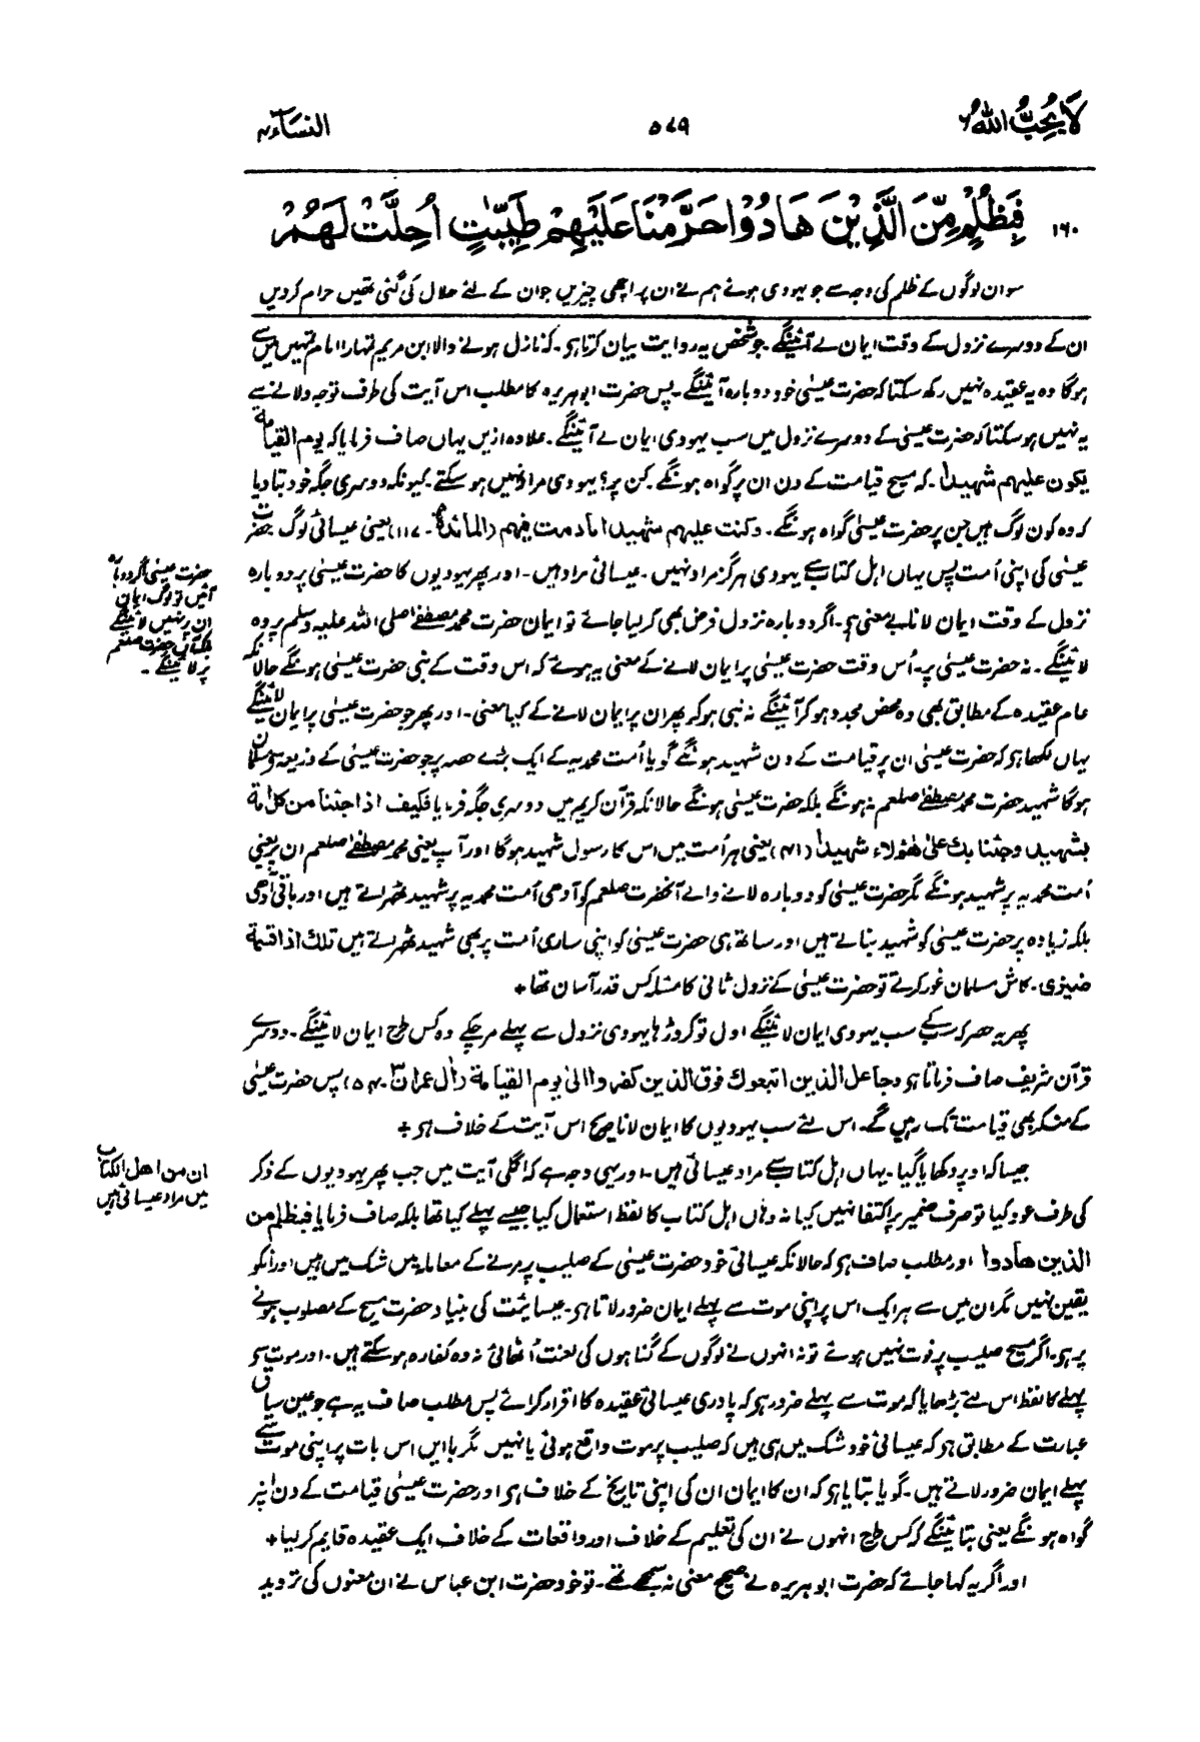 لَا يُحِبُّ اللّٰهُ ٦
۵۷۹
النساء ۴
۱۶۰ فَبِظُلْمٍ مِّنَ الَّذِيْنَ هَادُوْا حَرَّمْنَا عَلَيْهِمْ طَيِّبٰتٍ اُحِلَّتْ لَهُمْ
سو ان لوگوں کے ظلم کی وجہ سے جو یہودی ہوئے ہم نے ان پر اچھی چیزیں جو ان کے لئے حلال کی گئی تھیں حرام کردیں
ان کے دوسرے نزول کے وقت ایمان لے آئینگے۔ جو شخص یہ روایت بیان کرتا ہو۔ کہ نازل ہونے والا ابن مریم تمہارا امام تمہیں میں سے
ہوگا وہ یہ عقیدہ نہیں رکھ سکتا کہ حضرت عیسیٰ خود دوبارہ آئینگے۔ پس حضرت ابوہریرہ کا مطلب اس آیت کی طرف توجہ دلانے سے
یہ نہیں ہوسکتا کہ حضرت عیسیٰ کے دوسرے نزول میں سب یہودی ایمان لے آئینگے۔ علاوہ ازیں یہاں صاف فرمایا کہ یوم القیامۃ
یکون علیہم شہیدا۔ کہ مسیح قیامت کے دن ان پر گواہ ہونگے۔ کن پر؟ یہودی مراد نہیں ہوسکتے۔ کیونکہ دوسری جگہ خود بتا دیا
کہ وہ کون لوگ ہیں جن پر حضرت عیسیٰ گواہ ہونگے۔ وکنت علیہم شہیدا ما دمت فیہم (المائدۃ۔ ۱۱۷) یعنی عیسائی لوگ حضرت
عیسیٰ کی اپنی اُمت پس یہاں اہل کتاب سے یہودی ہرگز مراد نہیں۔ عیسائی مراد ہیں۔ اور پھر یہودیوں کا حضرت عیسیٰ پر دوبارہ
نزول کے وقت ایمان لانا بے معنی ہو۔ اگر دوبارہ نزول فرض بھی کر لیا جائے تو ایمان حضرت محمد مصطفےٰ صلی اللہ علیہ وسلم پر وہ
لائینگے۔ نہ حضرت عیسیٰ پر۔ اُس وقت حضرت عیسیٰ پر ایمان لانے کے معنی یہ ہوئے کہ اس وقت کے نبی حضرت عیسیٰ ہونگے حالانکہ
عام عقیدہ کے مطابق بھی وہ محض مجدد ہوکر آئینگے نہ نبی ہوکر پھر ان پر ایمان لانے کے کیا معنی۔ اور پھر جو حضرت عیسیٰ پر ایمان لائینگے
یہاں لکھا ہو کہ حضرت عیسیٰ ان پر قیامت کے دن شہید ہونگے گویا اُمت محمدیہ کے ایک بڑے حصہ پر جو حضرت عیسیٰ کے ذریعہ مسلمان
ہوگا شہید حضرت محمد مصطفےٰ صلعم نہ ہونگے بلکہ حضرت عیسیٰ ہونگے حالانکہ قرآن کریم میں دوسری جگہ فرمایا فکیف اذا جئنا من کل امۃ
بشہید وجئنا بک علیٰ ھٰؤلاء شہیدا (۴۱) یعنی ہر اُمت میں اس کا رسول شہید ہوگا اور آپ یعنی محمد مصطفےٰ صلعم ان پر یعنی
اُمت محمدیہ پر شہید ہونگے مگر حضرت عیسیٰ کو دوبارہ لانے والے آنحضرت صلعم کو آدھی اُمت محمدیہ پر شہید ٹھہراتے ہیں اور باقی آدھی
بلکہ زیادہ پر حضرت عیسیٰ کو شہید بناتے ہیں اور ساتھ ہی حضرت عیسیٰ کو اپنی ساری اُمت پر بھی شہید ٹھہراتے ہیں تلک اذا قسمۃ
ضیزی۔ کاش مسلمان غور کرتے تو حضرت عیسیٰ کے نزول ثانی کا مسئلہ کس قدر آسان تھا +
پھر یہ حصر کہ سب کے سب یہودی ایمان لائینگے اول تو کروڑ ہا یہودی نزول سے پہلے مرچکے وہ کس طرح ایمان لائینگے۔ دوسرے
قرآن شریف صاف فرماتا ہو وجاعل الذین اتبعوک فوق الذین کفروا الیٰ یوم القیامۃ (اٰل عمران ۳۔ ۵۴) پس حضرت عیسیٰ
کے منکر بھی قیامت تک رہیں گے۔ اس لئے سب یہودیوں کا ایمان لانا صریح اس آیت کے خلاف ہو +
جیسا کہ اوپر دکھایا گیا۔ یہاں اہل کتاب سے مراد عیسائی ہیں۔ اور یہی وجہ ہے کہ اگلی آیت میں جب پھر یہودیوں کے ذکر
کی طرف عود کیا تو صرف ضمیر پر اکتفا نہیں کیا نہ وہاں اہل کتاب کا لفظ استعمال کیا جیسے پہلے کیا تھا بلکہ صاف فرمایا فبظلم من
الذین ھادوا اور مطلب صاف ہو کہ حالانکہ عیسائی خود حضرت عیسیٰ کے صلیب پر مرنے کے معاملہ میں شک میں ہیں اور انکو
یقین نہیں مگر ان میں سے ہر ایک اس پر اپنی موت سے پہلے ایمان ضرور لاتا ہو۔ عیسائیت کی بنیاد حضرت مسیح کے مصلوب ہونے
پر ہو۔ اگر مسیح صلیب پر فوت نہیں ہوئے تو نہ انہوں نے لوگوں کے گناہوں کی لعنت اُٹھائی نہ وہ کفارہ ہوسکتے ہیں۔ اور موت سے
پہلے کا لفظ اس لئے بڑھایا کہ موت سے پہلے ضرور ہو کہ پادری عیسائی عقیدہ کا اقرار کرائے پس مطلب صاف یہ ہے جو عین سیاق
عبارت کے مطابق ہو کہ عیسائی خود شک میں ہی ہیں کہ صلیب پر موت واقع ہوئی یا نہیں مگر باایں اس بات پر اپنی موت سے
پہلے ایمان ضرور لاتے ہیں۔ گویا بتایا ہو کہ ان کا ایمان ان کی اپنی تاریخ کے خلاف ہو اور حضرت عیسیٰ قیامت کے دن ان پر
گواہ ہونگے یعنی بتائینگے کہ کس طرح انہوں نے ان کی تعلیم کے خلاف اور واقعات کے خلاف ایک عقیدہ قایم کرلیا +
اور اگر یہ کہا جائے کہ حضرت ابوہریرہ نے صحیح معنی نہ سمجھے تھے۔ تو خود حضرت ابن عباس نے ان معنوں کی تردید
حضرت عیسیٰ اگر دوبارہ
آئیں تو لوگ ایمان
ان پر نہیں لائینگے
بلکہ آنحضرت صلعم
پر لائینگے۔
ان من اھل الکتاب
میں مراد عیسائی ہیں